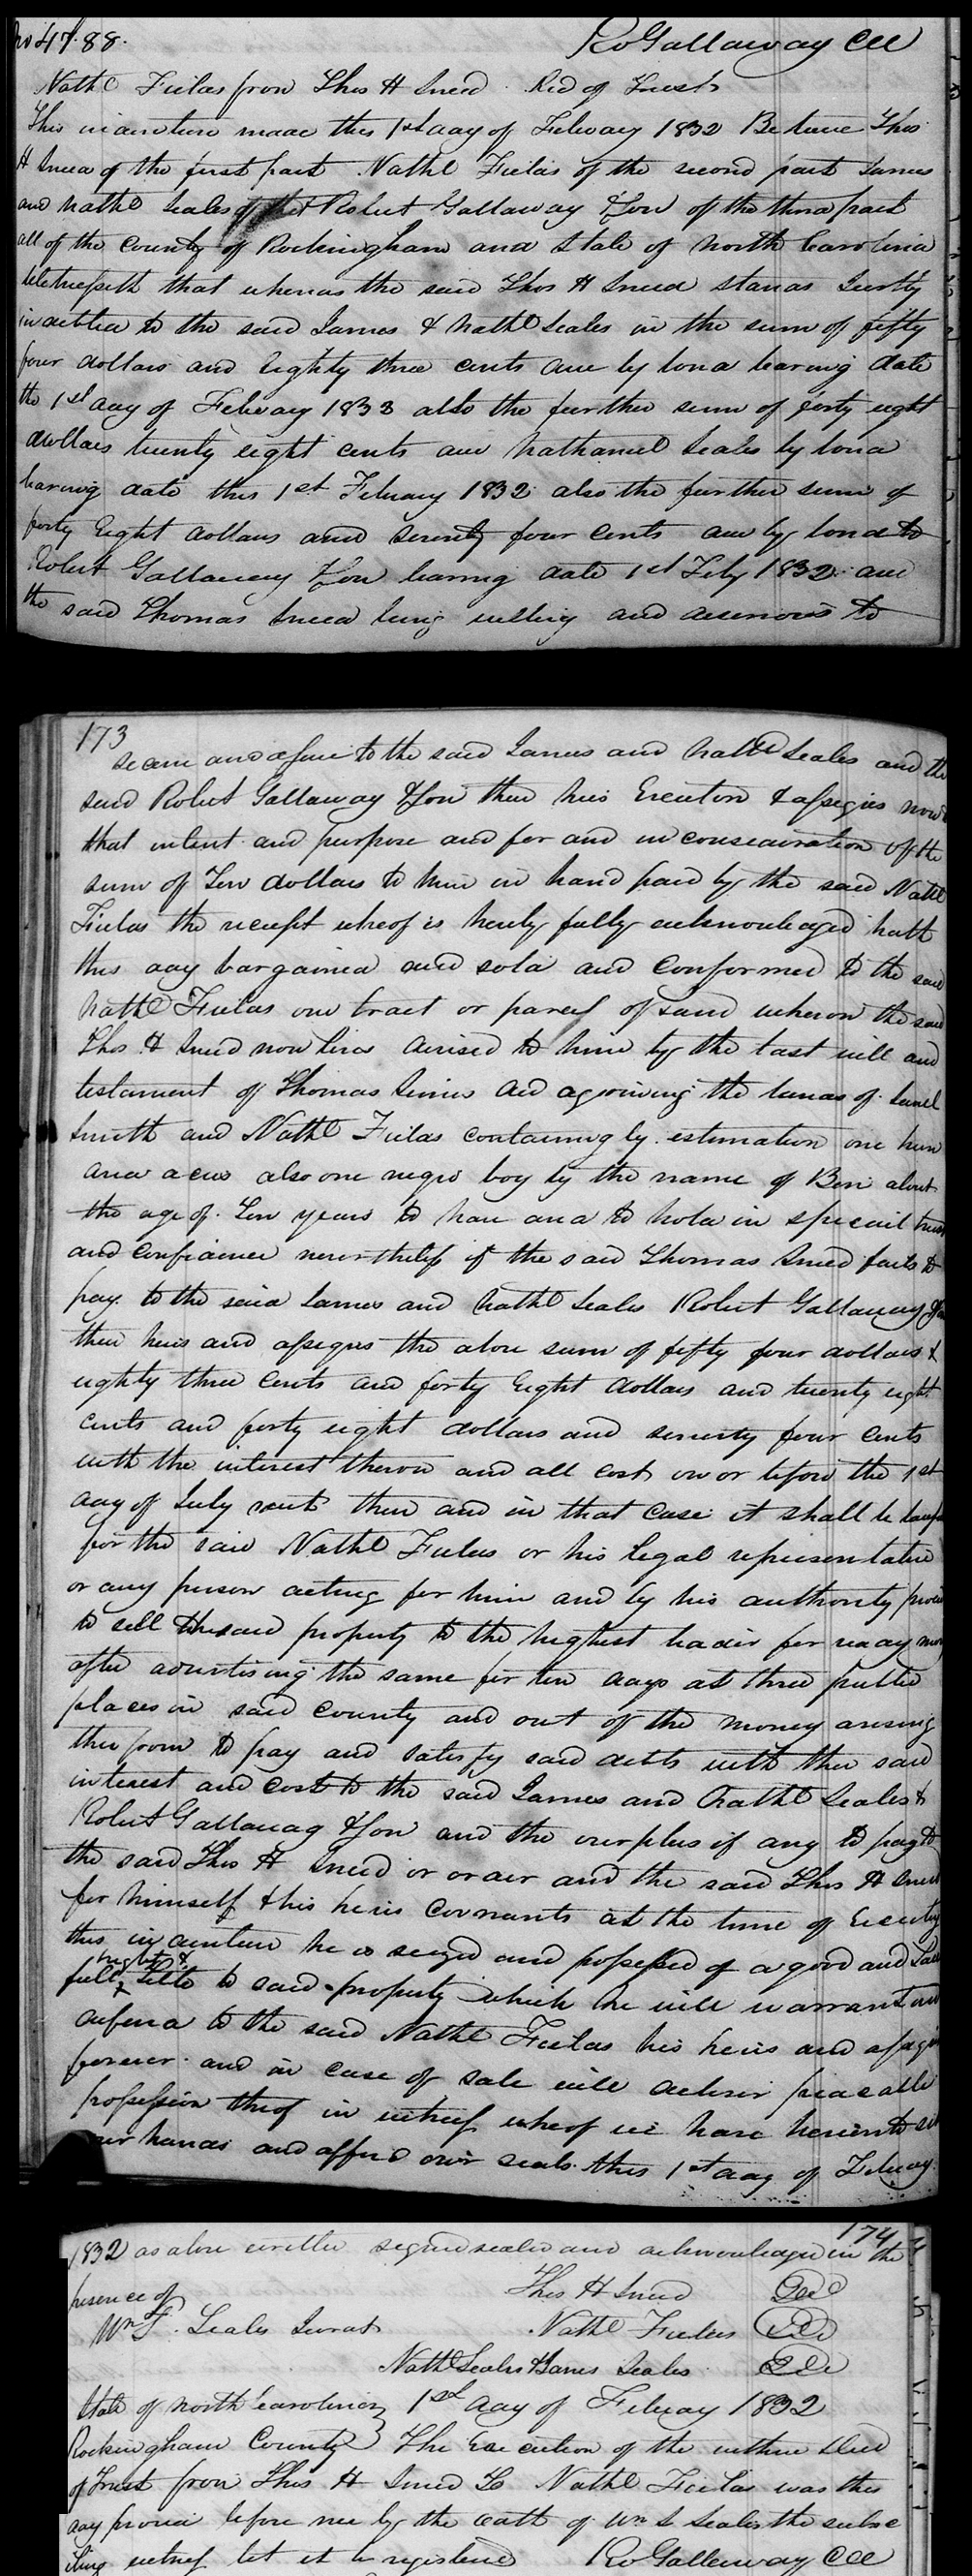 No 47.88. Ro Gallaway CCC
Nathl Fields from Thos H Sneed Ded of Trust
This indenture made this 1st day of Febuary 1832 Betwene Thos
H Sneed of the first part Nathl Fields of the second part James
and Nathl Scales Robert Gallaway & Son of the third part
all of the County of Rockingham and State of North Carolina
Witnesseth that whereas the said Thos H Sneed stands Justly
indebted to the said James & Nathl Scales in the sum of fifty
four dollars and Eighty three cents due by bond bearing date
the 1st day of Febuary 1833 also the further sum of forty eight
dollars twenty eight cents due Nathaniel Scales by bond
bearing date this 1st Febuary 1832 also the further sum of
forty Eight dollars and seventy four cents due by bond to
Robert Gallaway & Son bearing date 1st Feby 1832 and
the said Thomas Sneed being willing and desireous to
173
secure and assure to the said James and Nathl Scales and the
said Robert Gallaway & Son their heirs Executors & assigns now
that intent and purpose and for and in consideration of the
sum of Ten dollars to him in hand paid by the said Nathl
Fields the receipt whereof is hereby fully acknowledged hath
this day bargained and sold and conformed to the said
Nathl Fields one tract or parcel of land wheron the said
Thos H Sneed now lives devised to him by the last will and
testament of Thomas ded agoining the lands of Saml
Smith and Nathl Fields containing by estimation one hun
dred acres also one negro boy by the name of Ben about
the age of Ten years to have and to hold in special trust
and confidence nevertheless if the said Thomas Sneed fails to
pay to the said James and Nathl Scales Robert Gallaway & Son
their heirs and assigns the above sum of fifty four dollars &
eighty three cents and forty Eight dollars and twenty eight
cents and forty eight dollars and seventy four cents
with the interest theron and all cost on or before the 1st
day of July next then and in that case it shall be lawful
for the said Nathl Fields or his legal representative
or any person acting for him and by his authority
to sell the said property to the highest bidder for ready
after advertising the same for ten days at three public
places in said County and out of the money arising
therefrom to pay and satisfy said debts with the said
interest and cost to the said James and Nathl Scales &
Robert Gallaway & Son and the overplus if any to pay to
the said Thos H Sneed or order and the said Thos H Sneed
for himself & his heirs Covenants at the time of Executing
this indenture he is seized and possessed of a good and
right &
full title to said property which he will warrant and
defend to the said Nathl Fields his heirs and assigns
forever and in case of sale will deliver peacable
possession thereof in witness whereof we have hereunto set
our hands and affixed our seals this 1st day of Febuary
174
1832 as above written signed sealed and acknowledged in the
presence of Thos H Sneed Seal
Wm S. Scales Jurat Nathl Fields Seal
Nathl Scales & James Scales Seal
State of North Carolina 1st day of Febuary 1832
Rockingham County The Execution of the within Deed
of Trust from Thos H Sneed To Nathl Fields was this
day proved before me by the oath of Wm S Scales the subsc
ribing witness let it be registered Ro Gallaway CCC